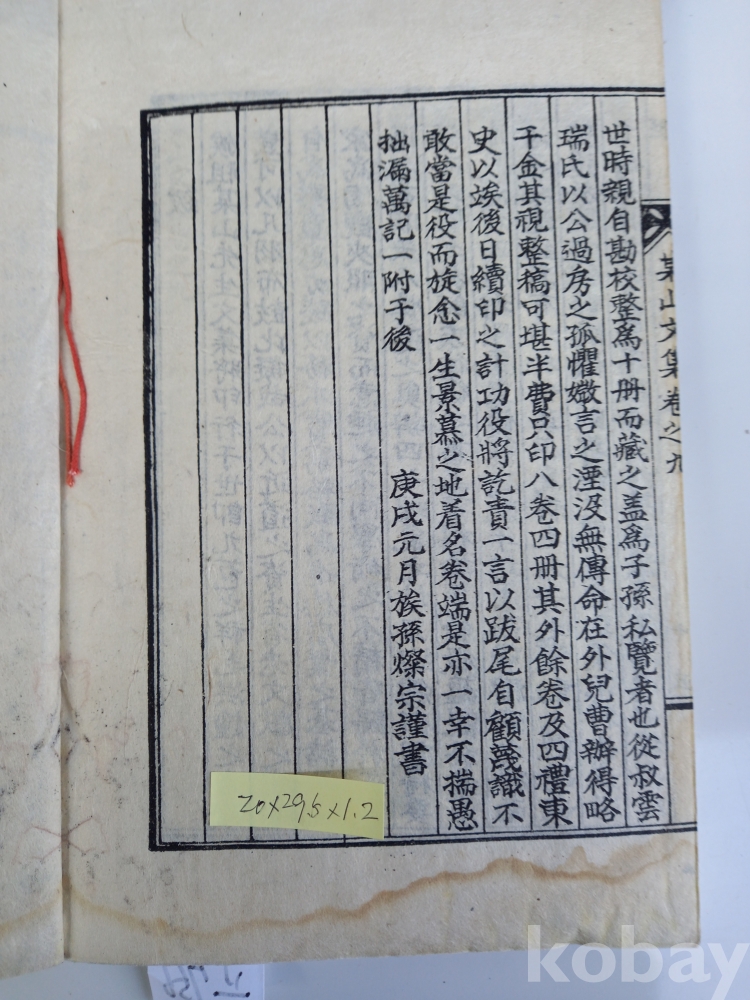 山文集卷之九
世時親自勘校整爲十册而藏之盖爲子孫私覽者也從叔雲
瑞氏以公過房之孤懼媺言之湮没無傳命在外兒曹辦得略
干金其視整稿可堪半費只印八卷四册其外餘卷及四禮東
史以竢後日續印之計功役將訖責一言以跋尾自顧蔑識不
敢當是役而旋念一生景慕之地着名卷端是亦一幸不揣愚
拙漏萬記一附于後
庚戌元月族孫燦宗謹書
20×29.5×1.2
kobay